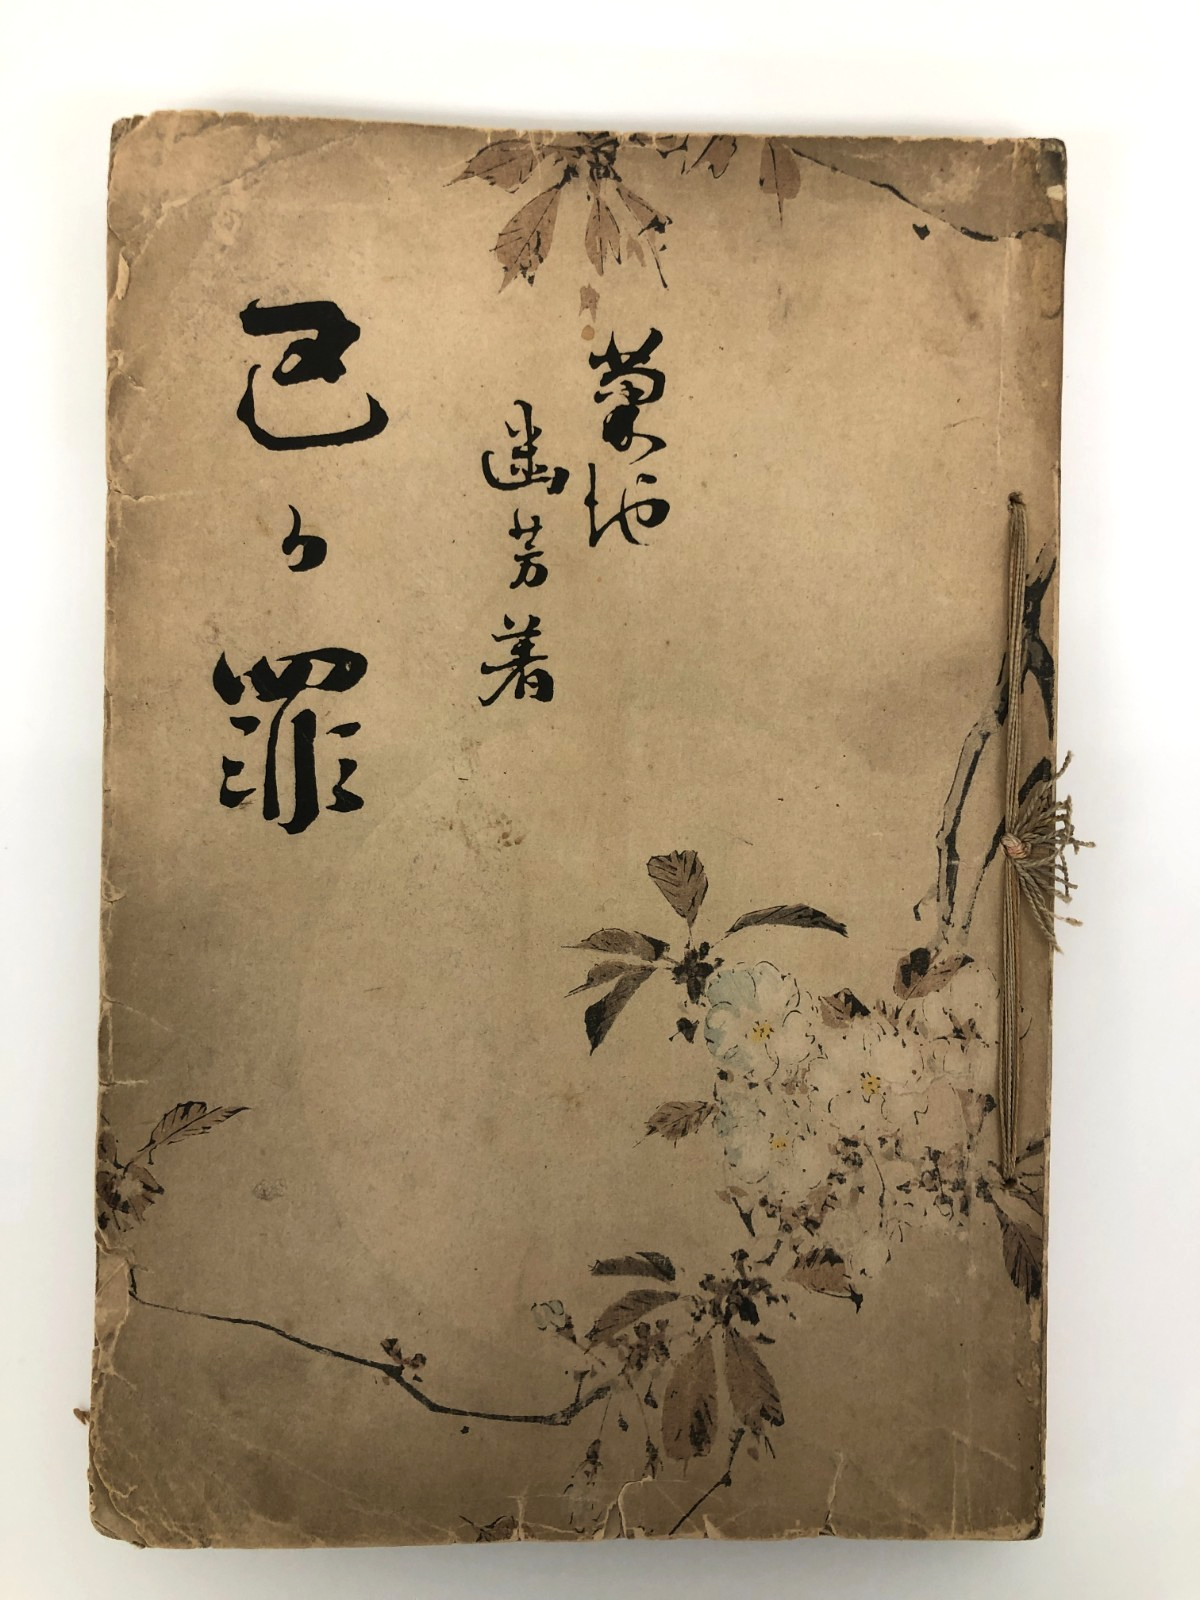 菊池
幽芳著
己が罪